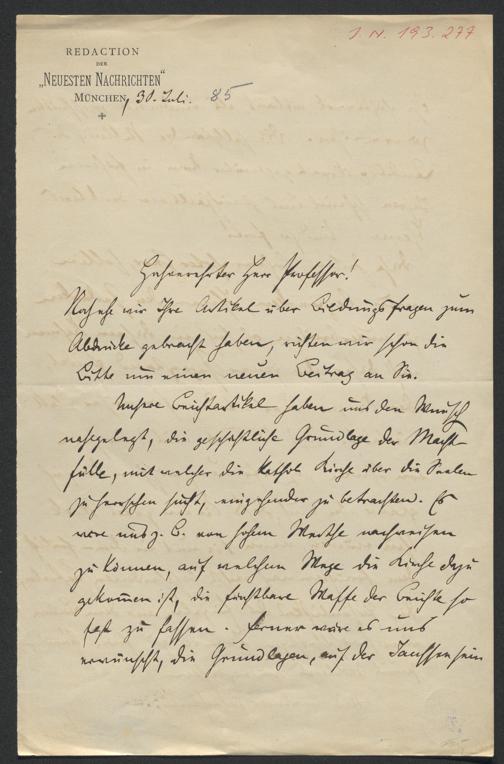 I. N. 193.277
REDACTION
DER
„NEUESTEN NACHRICHTEN“
MÜNCHEN, 30. Juli. 85
Hochverehrter Herr Professor!
Noch ehe wir Ihre Artikel über Bildungsfragen zum
Abdrucke gebracht haben, richten wir schon die
Bitte um einen neuen Beitrag an Sie.
Unsere Beichtartikel haben uns den Wunsch
nahegelegt, die geschichtliche Grundlage der Macht-
fülle, mit welcher die kathol. Kirche über die Seelen
zu herrschen sucht, eingehender zu betrachten. Es
wäre uns z. B. von hohem Werthe nachweisen
zu können, auf welchem Wege die Kirche dazu
gekommen ist, die furchtbare Waffe der Beichte so
fest zu fassen. Ferner wäre es uns
erwünscht, die Grundlagen, auf der Janssen sein